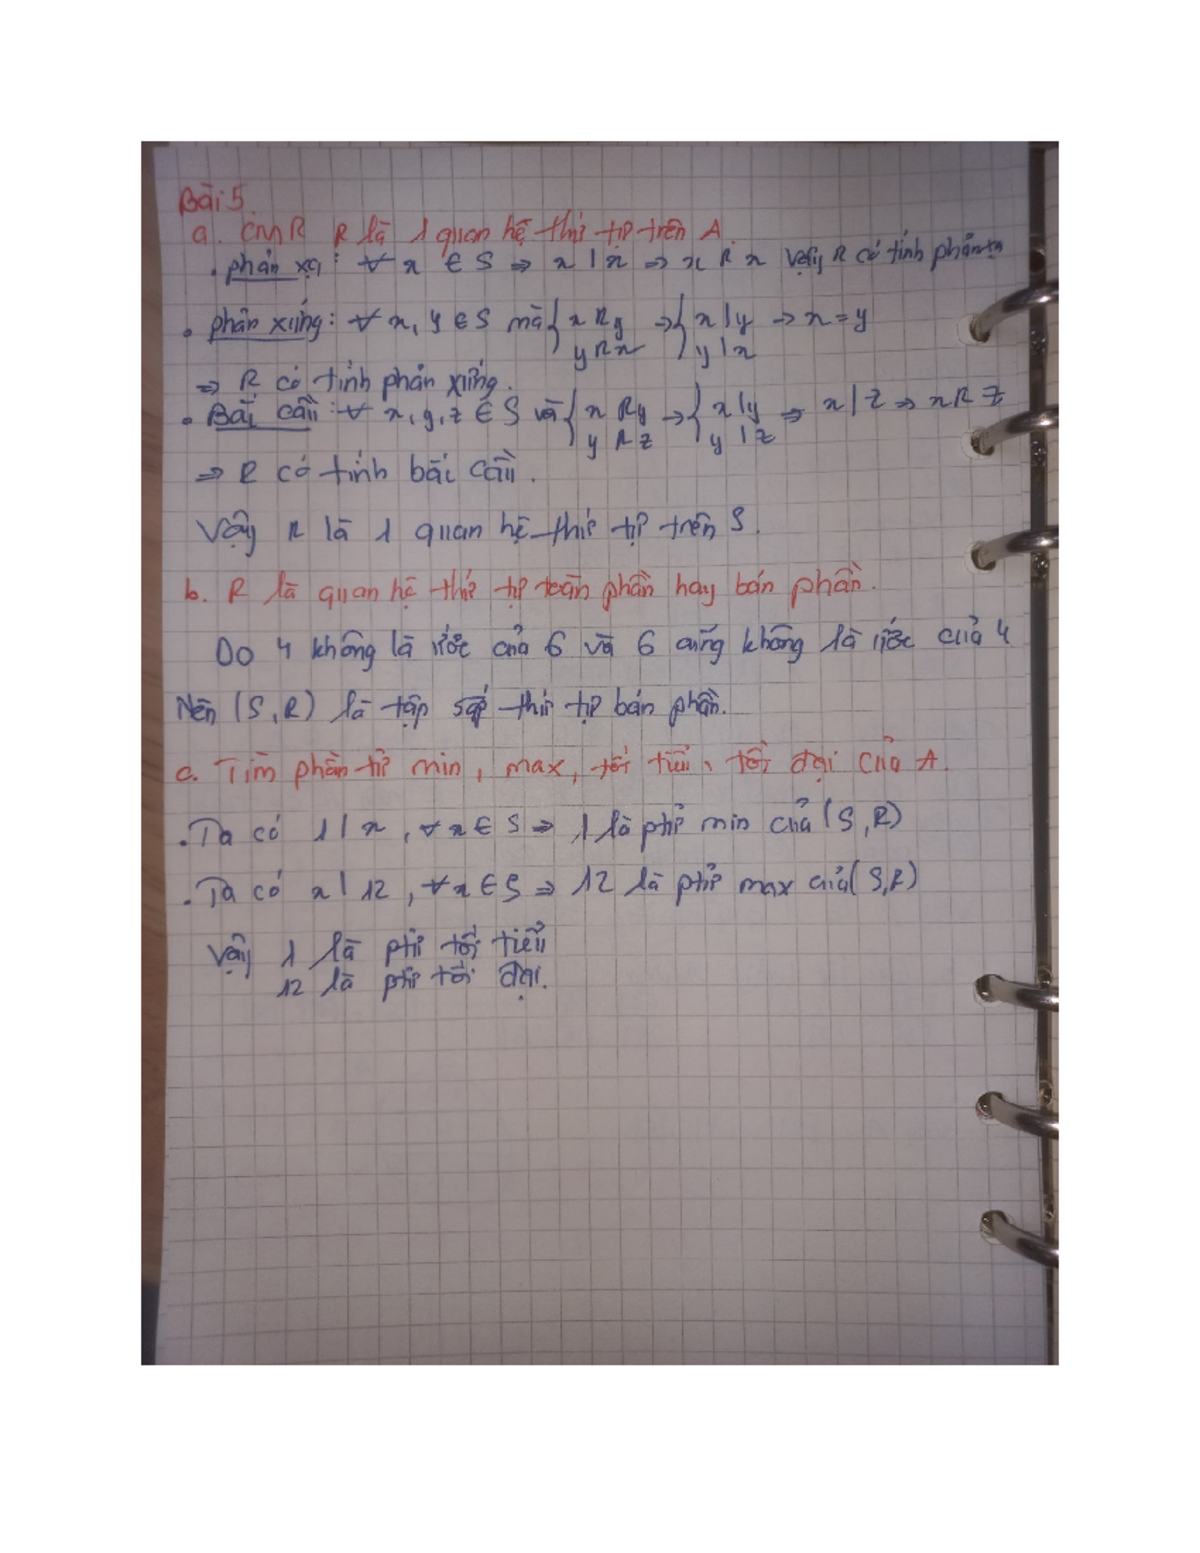 Bài 5
a. CMR R là 1 quan hệ thứ tự trên A.
. phản xạ : ∀ x ∈ S ⇒ x | x ⇒ x R x vậy R có tính phản xạ
. phản xứng : ∀ x, y ∈ S mà { x R y → { x | y → x = y
y R x y | x
⇒ R có tính phản xứng.
. Bắc cầu : ∀ x, y, z ∈ S và { x R y → { x | y ⇒ x | z ⇒ x R z
y R z y | z
⇒ R có tính bắc cầu.
Vậy R là 1 quan hệ thứ tự trên S.
b. R là quan hệ thứ tự toàn phần hay bán phần.
Do 4 không là ước của 6 và 6 cũng không là ước của 4
Nên (S, R) là tập sắp thứ tự bán phần.
c. Tìm phần tử min, max, tối tiểu, tối đại của A.
. Ta có 1 | x , ∀ x ∈ S ⇒ 1 là ptử min của (S, R)
. Ta có x | 12 , ∀ x ∈ S ⇒ 12 là ptử max của (S, R)
Vậy 1 là ptử tối tiểu
12 là ptử tối đại.